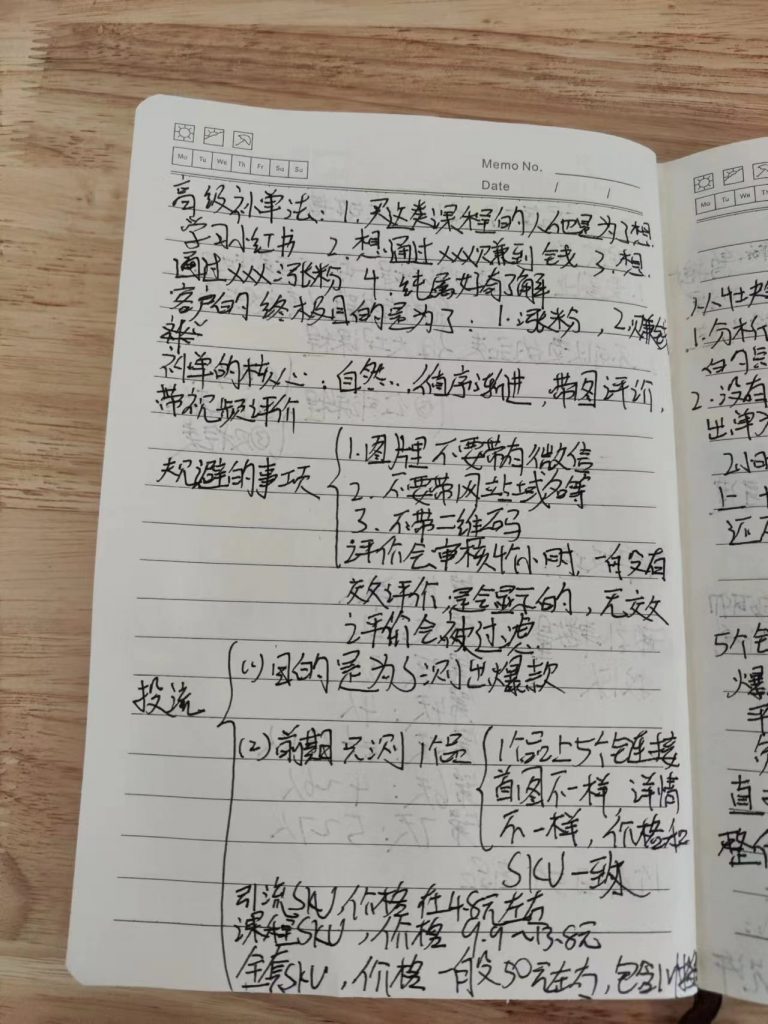 Mo Tu We Th Fr Sa Su
Memo No.
Date / /
高级补单法：1. 买这类课程的人他是为了想
学习小红书 2. 想通过xxx赚到钱 3. 想
通过xxx涨粉 4. 纯属好奇了解
客户的终极目的是为了：1. 涨粉，2. 赚钱
补单的核心：自然…，循序渐进，带图评价，
带视频评价
规避的事项
1. 图片里不要带有微信
2. 不要带网站域名等
3. 不带二维码
评价会审核4个小时，一般有
效评价，是会显示的，无效
评价会被过滤
投流
(1) 目的是为了测出爆款
(2) 前期先测1个品
1个品上5个链接
首图不一样 详情
不一样，价格和
SKU一致
引流SKU，价格在4.8元左右
课程SKU，价格9.9~13.8元
全套SKU，价格一般50元左右，包含
Mo Tu We Th
1. 分析
2. 没有
出单
2小时
5个
爆
平
直
整个